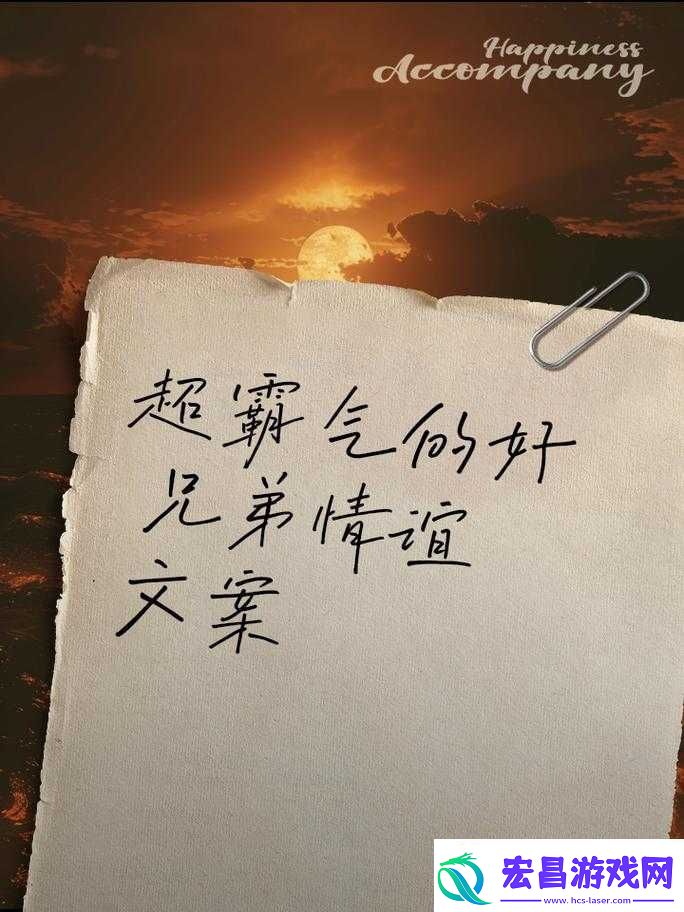 Happiness
Accompany
超霸气的好
兄弟情谊
文案
宏昌游戏网
www.hcs-laser.com